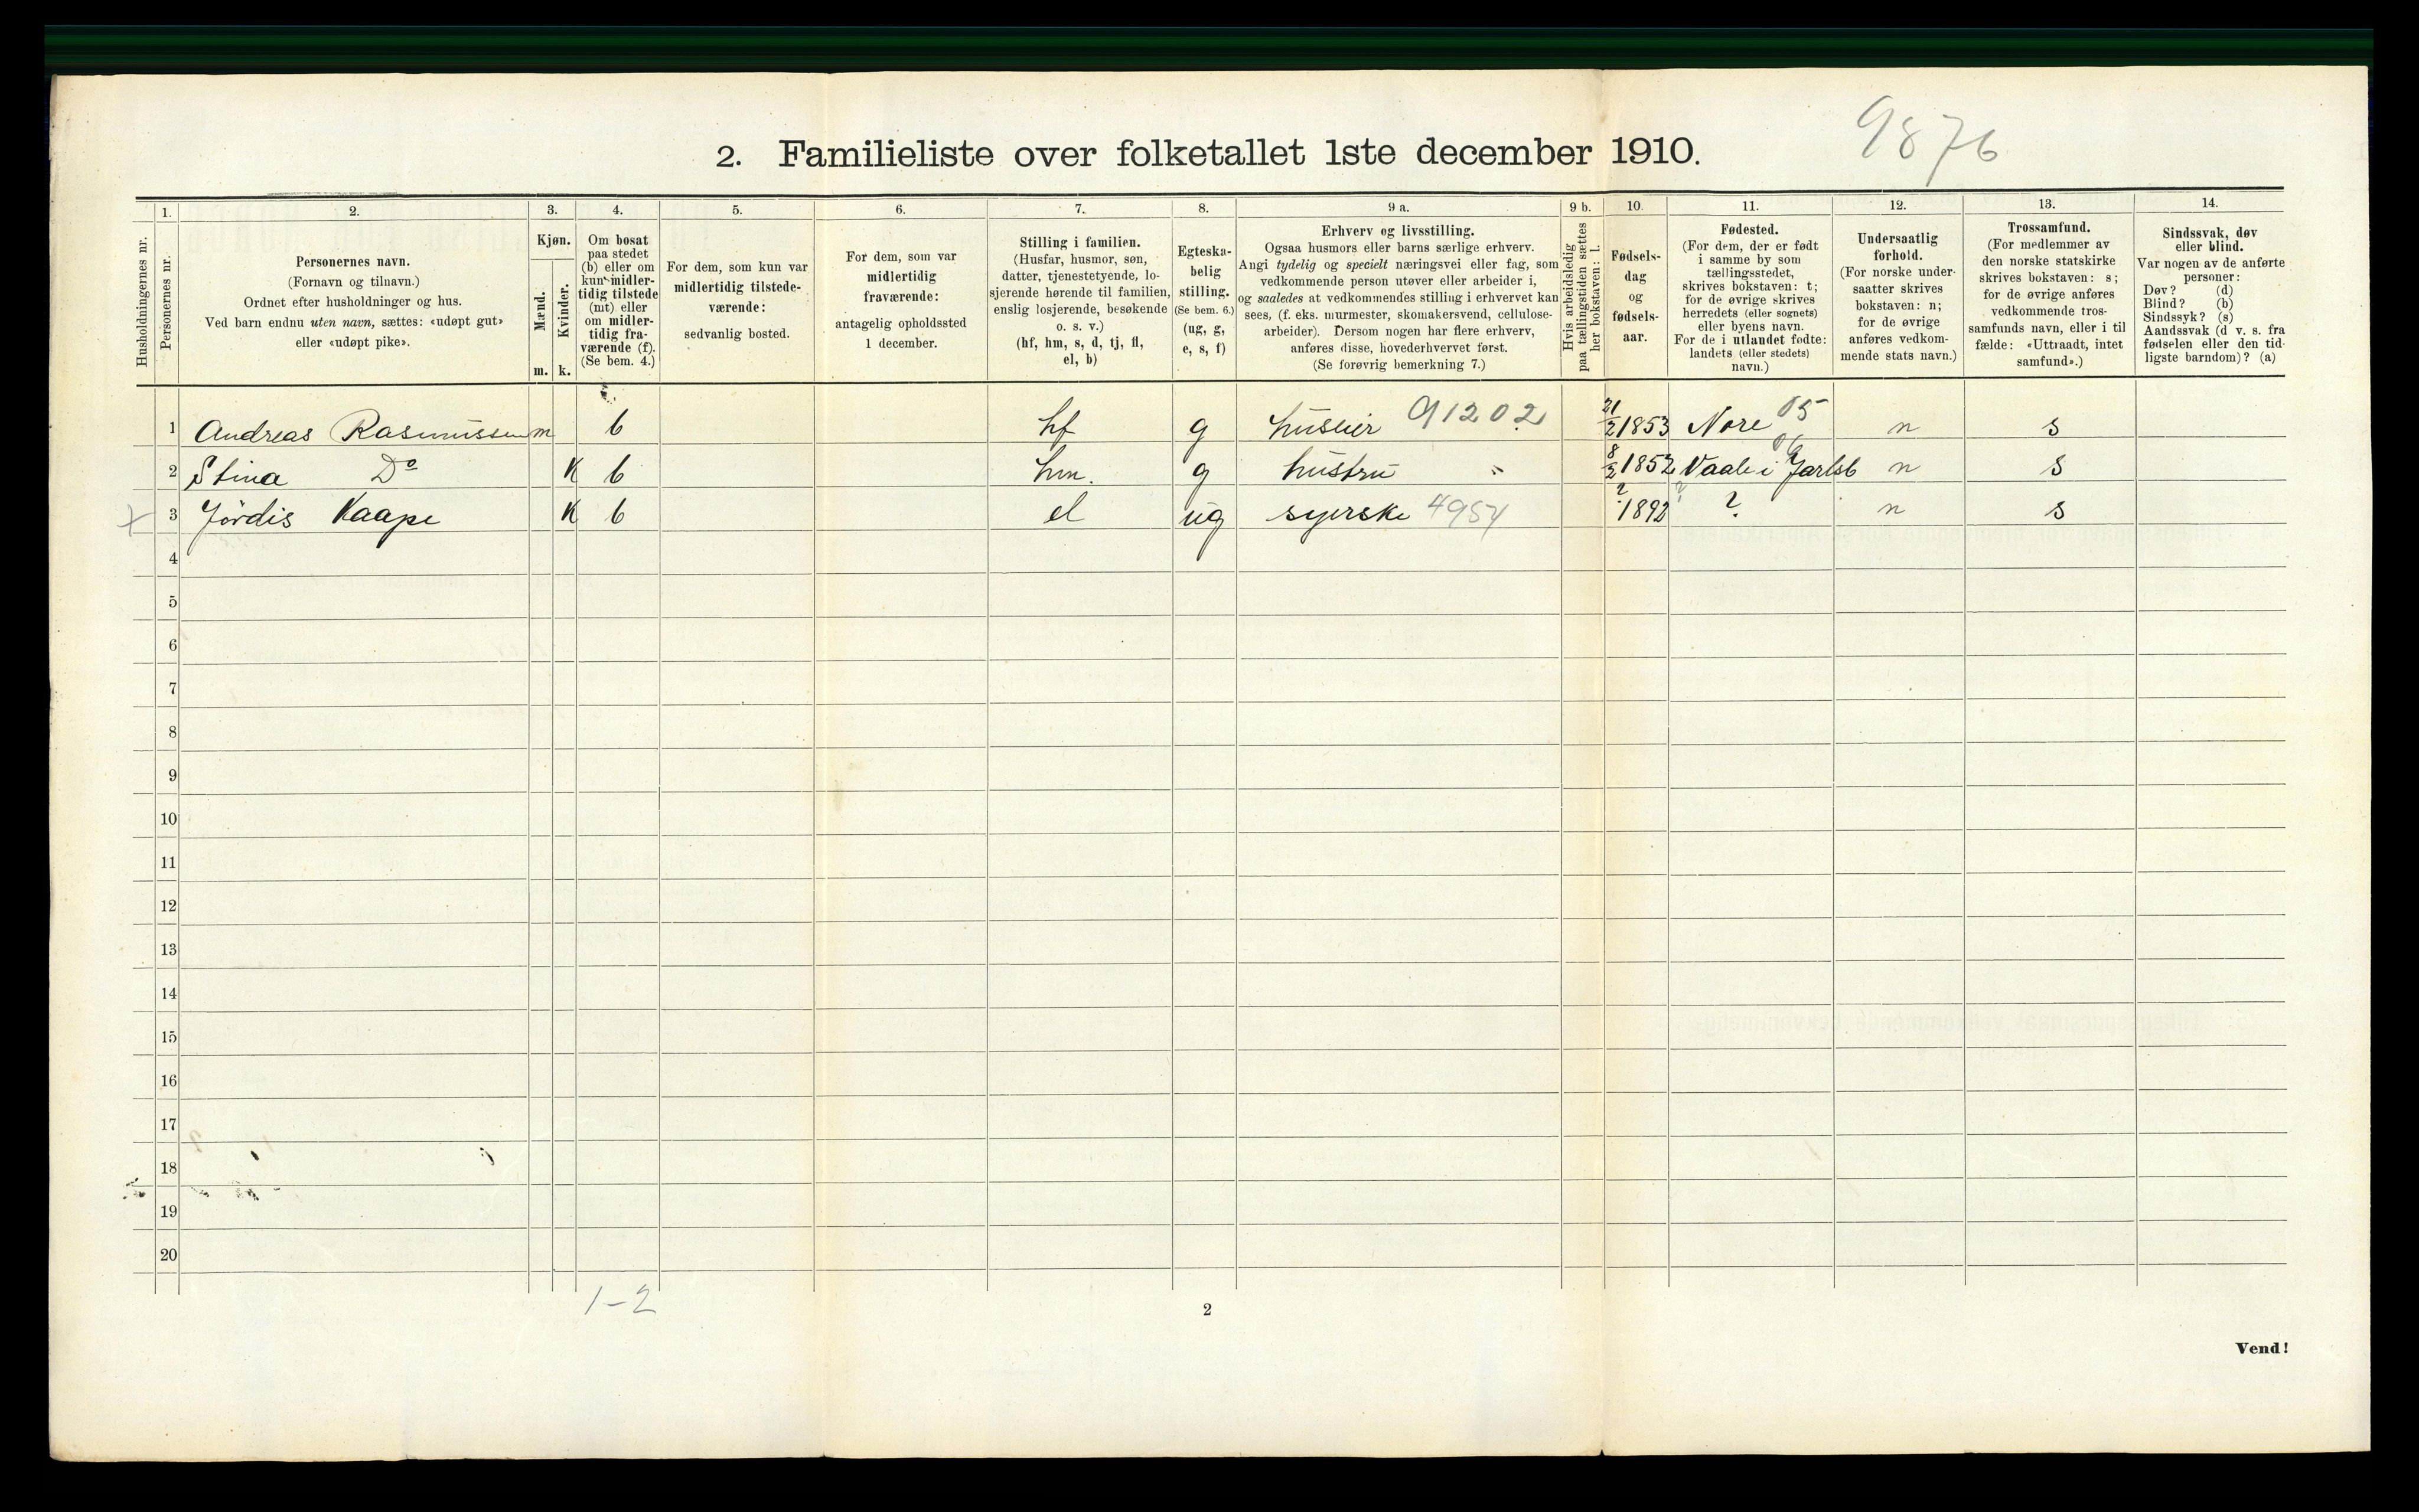 9876
2. Familieliste over folketallet 1ste december 1910.
Husholdningernes nr.
1.
Personernes nr.
2.
Personernes navn.
(Fornavn og tilnavn.)
Ordnet efter husholdninger og hus.
Ved barn endnu uten navn, sættes: «udøpt gut»
eller «udøpt pike».
3.
Kjøn.
Mænd.
Kvinder.
m. k.
4.
Om bosat
paa stedet
(b) eller om
kun midler-
tidig tilstede
(mt) eller
om midler-
tidig fra-
værende (f).
(Se bem. 4.)
5.
For dem, som kun var
midlertidig tilstede-
værende:
sedvanlig bosted.
6.
For dem, som var
midlertidig
fraværende:
antagelig opholdssted
1 december.
7.
Stilling i familien.
(Husfar, husmor, søn,
datter, tjenestetyende, lo-
sjerende hørende til familien,
enslig losjerende, besøkende
o. s. v.)
(hf, hm, s, d, tj, fl,
el, b)
8.
Egteska-
belig
stilling.
(Se bem. 6.)
(ug, g,
e, s, f)
9 a.
Erhverv og livsstilling.
Ogsaa husmors eller barns særlige erhverv.
Angi tydelig og specielt næringsvei eller fag, som
vedkommende person utøver eller arbeider i,
og saaledes at vedkommendes stilling i erhvervet kan
sees, (f. eks. murmester, skomakersvend, cellulose-
arbeider). Dersom nogen har flere erhverv,
anføres disse, hovederhvervet først.
(Se forøvrig bemerkning 7.)
9 b.
Hvis arbeidsledig
paa tællingstiden sættes
her bokstaven: l.
10.
Fødsels-
dag
og
fødsels-
aar.
11.
Fødested.
(For dem, der er født
i samme by som
tællingsstedet,
skrives bokstaven: t;
for de øvrige skrives
herredets (eller sognets)
eller byens navn.
For de i utlandet fødte:
landets (eller stedets)
navn.)
12.
Undersaatlig
forhold.
(For norske under-
saatter skrives
bokstaven: n;
for de øvrige
anføres vedkom-
mende stats navn.)
13.
Trossamfund.
(For medlemmer av
den norske statskirke
skrives bokstaven: s;
for de øvrige anføres
vedkommende tros-
samfunds navn, eller i til
fælde: «Uttraadt, intet
samfund».)
14.
Sindssvak, døv
eller blind.
Var nogen av de anførte
personer:
Døv? (d)
Blind? (b)
Sindssyk? (s)
Aandssvak (d v. s. fra
fødselen eller den tid-
ligste barndom)? (a)
1 Andreas Rasmussen m b hf g huseier 91202 21/2 1853 Nore 05 n s
2 Stina Do K b hm. g hustru " 8/2 1852 Vaale i Jarlsb 06 n s
x 3 Jördis Kaape K b el ug syerske 4954 ? 1892 ? ? n s
4
5
6
7
8
9
10
11
12
13
14
15
16
17
18
19
20
1-2
2
Vend!